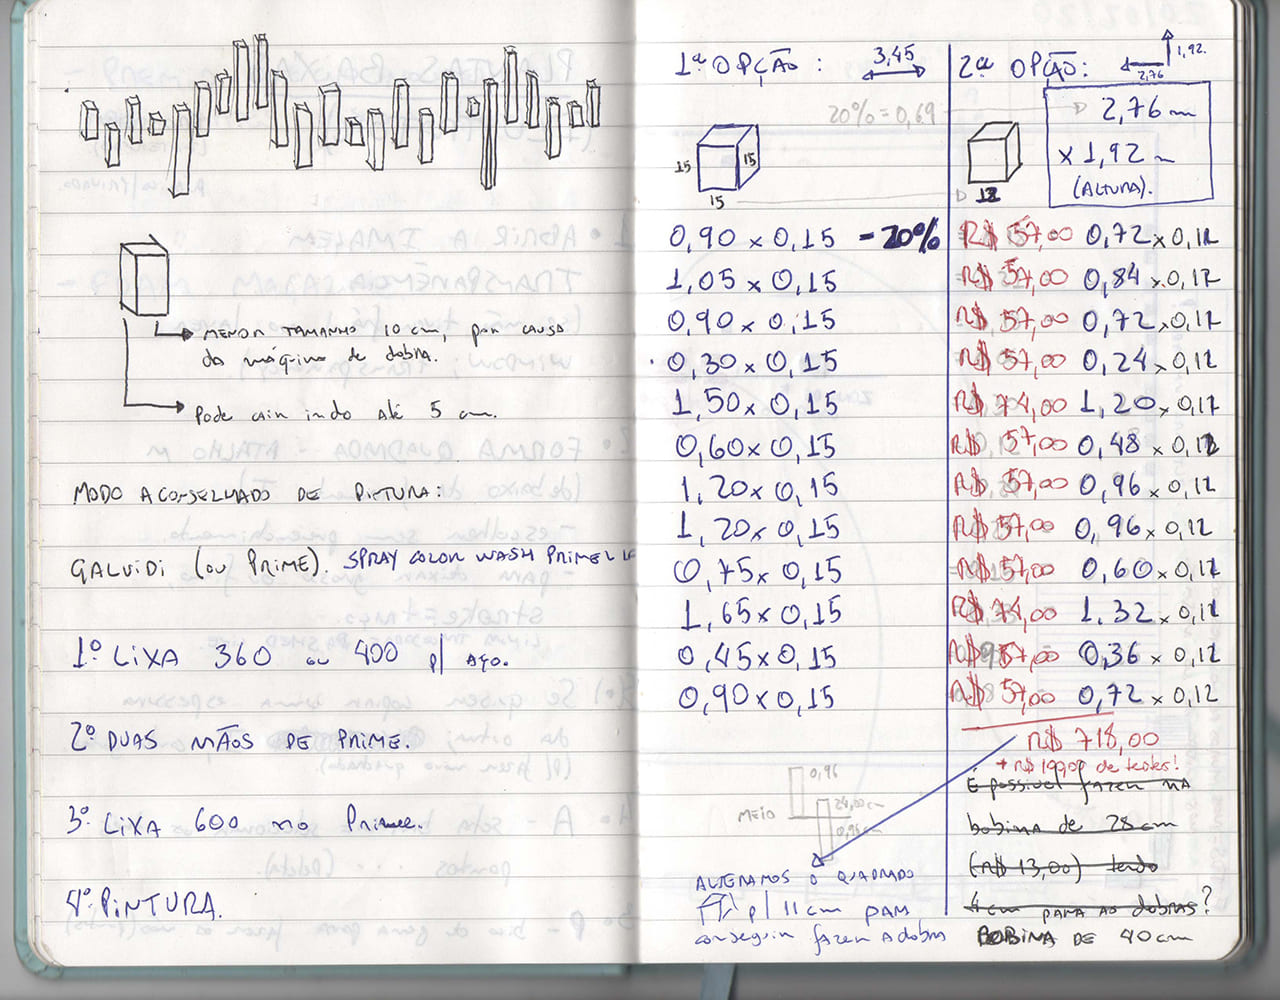 MENOR TAMANHO 10 cm, por causa
da máquina de dobra.
Pode cair indo até 5 cm.
MODO ACONSELHADO DE PINTURA:
GALVIDI (ou PRIME). SPRAY COLOR WASH PRIMER
1º LIXA 360 ou 400 p/ AÇO.
2º DUAS MÃOS DE PRIME.
3º LIXA 600 no Prime.
4º PINTURA.
1ª OPÇÃO: 3,45
20% = 0,69
15 15
15
0,90 x 0,15 - 20%
1,05 x 0,15
0,90 x 0,15
0,30 x 0,15
1,50 x 0,15
0,60 x 0,15
1,20 x 0,15
1,20 x 0,15
0,75 x 0,15
1,65 x 0,15
0,45 x 0,15
0,90 x 0,15
0,96
MEIO 24,00 cm
0,96
ALTERAMOS O QUADRADO
p/ 11 cm PARA
conseguir fazer A dobra
2ª OPÇÃO: 1,92
2,76
2,76 m
x 1,92 m
(ALTURA).
12
R$ 57,00 0,72 x 0,12
R$ 57,00 0,84 x 0,12
R$ 57,00 0,72 x 0,12
R$ 57,00 0,24 x 0,12
R$ 74,00 1,20 x 0,12
R$ 57,00 0,48 x 0,12
R$ 57,00 0,96 x 0,12
R$ 57,00 0,96 x 0,12
R$ 57,00 0,60 x 0,12
R$ 74,00 1,32 x 0,12
R$ 57,00 0,36 x 0,12
R$ 57,00 0,72 x 0,12
R$ 718,00
+ R$ de testes!
É possivel fazer NA
bobina de 28 cm
(R$ 13,00) tendo
4 cm PARA AS dobras?
BOBINA DE 40 cm